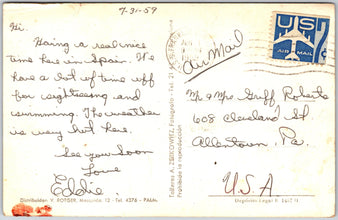 7-31-59
Hi.
Having a real nice
time here in Spain. We
have a lot of time off
for sightseeing and
swimming. The weather
is very hot here.
See you Soon
Love
Eddie
Air Mail
US
AIR MAIL
7¢
Mr & Mrs Griff Roberts
608 Cleveland St
Allentown, Pa.
U.S.A.
A. ZERKOWITZ, Fotógrafo - Tel. 21
Prohibida la reproducción
Distribuidor: V. Tel. 6376 - PALMA
Depósito Legal